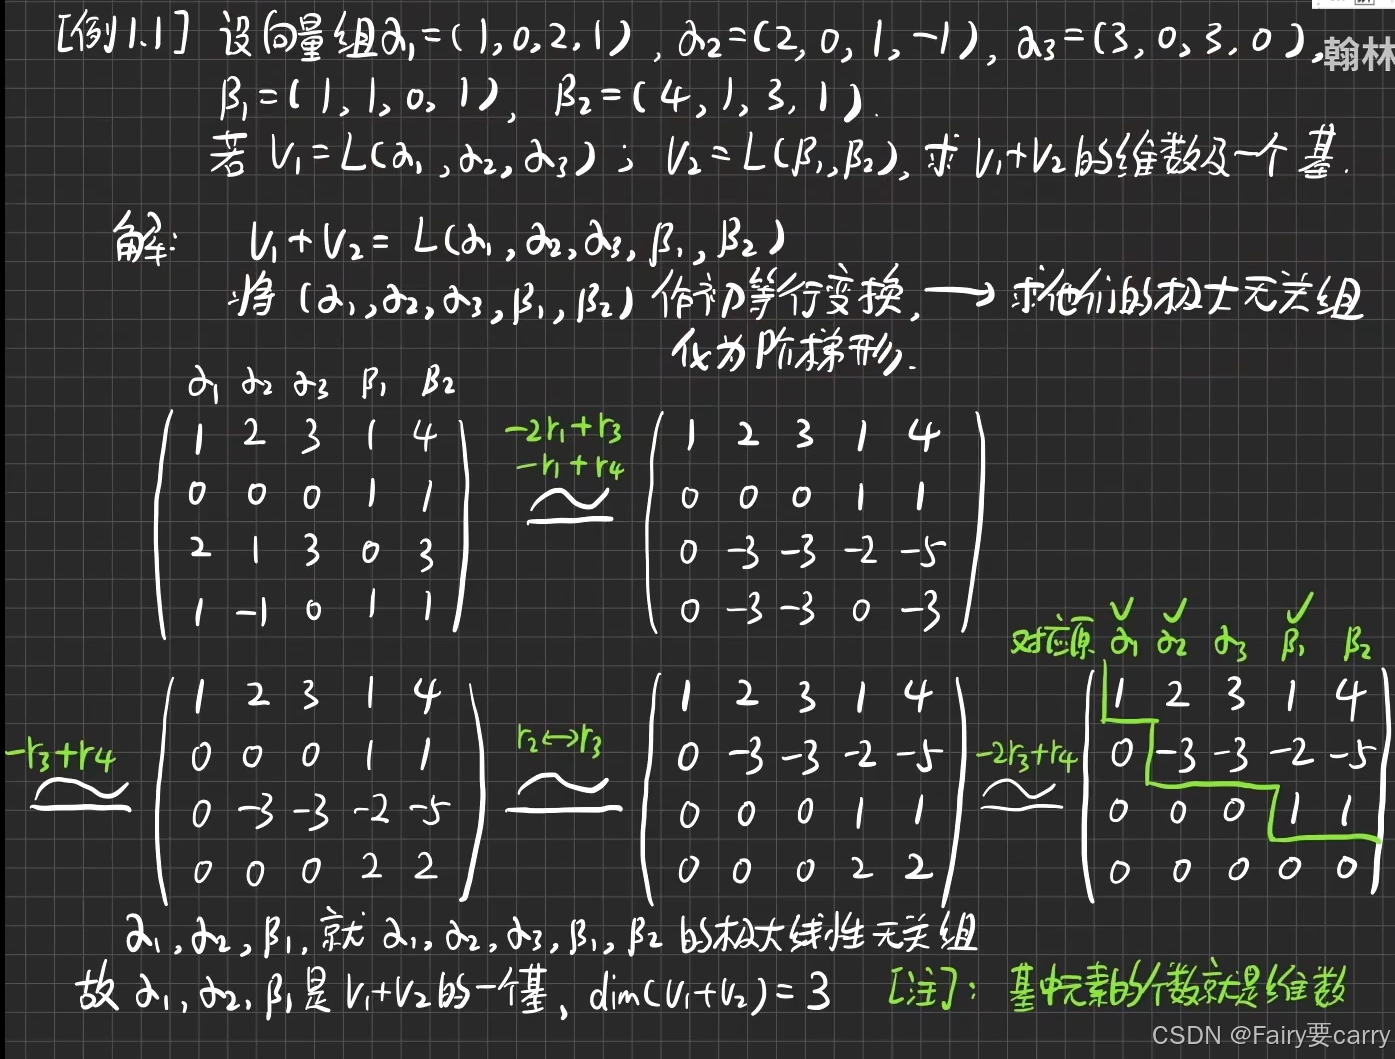 [例1.1] 设向量组α₁=(1,0,2,1), α₂=(2,0,1,-1), α₃=(3,0,3,0),
翰林
β₁=(1,1,0,1), β₂=(4,1,3,1).
若 V₁=L(α₁,α₂,α₃); V₂=L(β₁,β₂), 求 V₁+V₂ 的维数及一个基.
解: V₁+V₂=L(α₁,α₂,α₃,β₁,β₂)
将 (α₁,α₂,α₃,β₁,β₂) 作初等行变换, → 求他们的极大无关组
化为阶梯形.
α₁ α₂ α₃ β₁ β₂
1 2 3 1 4
0 0 0 1 1
2 1 3 0 3
1 -1 0 1 1
-2r₁+r₃
-r₁+r₄
1 2 3 1 4
0 0 0 1 1
0 -3 -3 -2 -5
0 -3 -3 0 -3
-r₃+r₄
1 2 3 1 4
0 0 0 1 1
0 -3 -3 -2 -5
0 0 0 2 2
r₂↔r₃
1 2 3 1 4
0 -3 -3 -2 -5
0 0 0 1 1
0 0 0 2 2
-2r₃+r₄
对应原 α₁ α₂ α₃ β₁ β₂
1 2 3 1 4
0 -3 -3 -2 -5
0 0 0 1 1
0 0 0 0 0
α₁,α₂,β₁, 就 α₁,α₂,α₃,β₁,β₂ 的极大线性无关组
故 α₁,α₂,β₁是 V₁+V₂的一个基, dim(V₁+V₂)=3 [注]: 基中元素的个数就是维数
CSDN @Fairy要carry